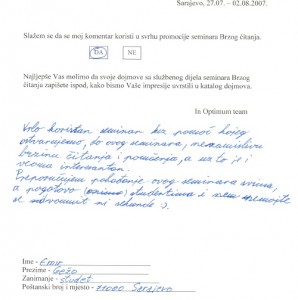 Sarajevo, 27.07. – 02.08.2007.
Slažem se da se moj komentar koristi u svrhu promocije seminara Brzog čitanja.
DA NE
Najljepše Vas molimo da svoje dojmove sa službenog dijela seminara Brzog
čitanja napišete ispod, kako bismo Vaše impresije uvrstili u katalog dojmova.
In Optimum team
Vrlo koristan seminar uz pomoć kojeg
ostvarujemo, do ovog seminara, nezamislive
brzine čitanja i pamćenja, a uz to je i
veoma interesantan.
Preporučujem pohađanje ovog seminara svima,
a pogotovo studentima i nemojte
se ni sekunde :).
Ime - Emir
Prezime - Gežo
Zanimanje - student
Poštanski broj i mjesto - 71000 Sarajevo